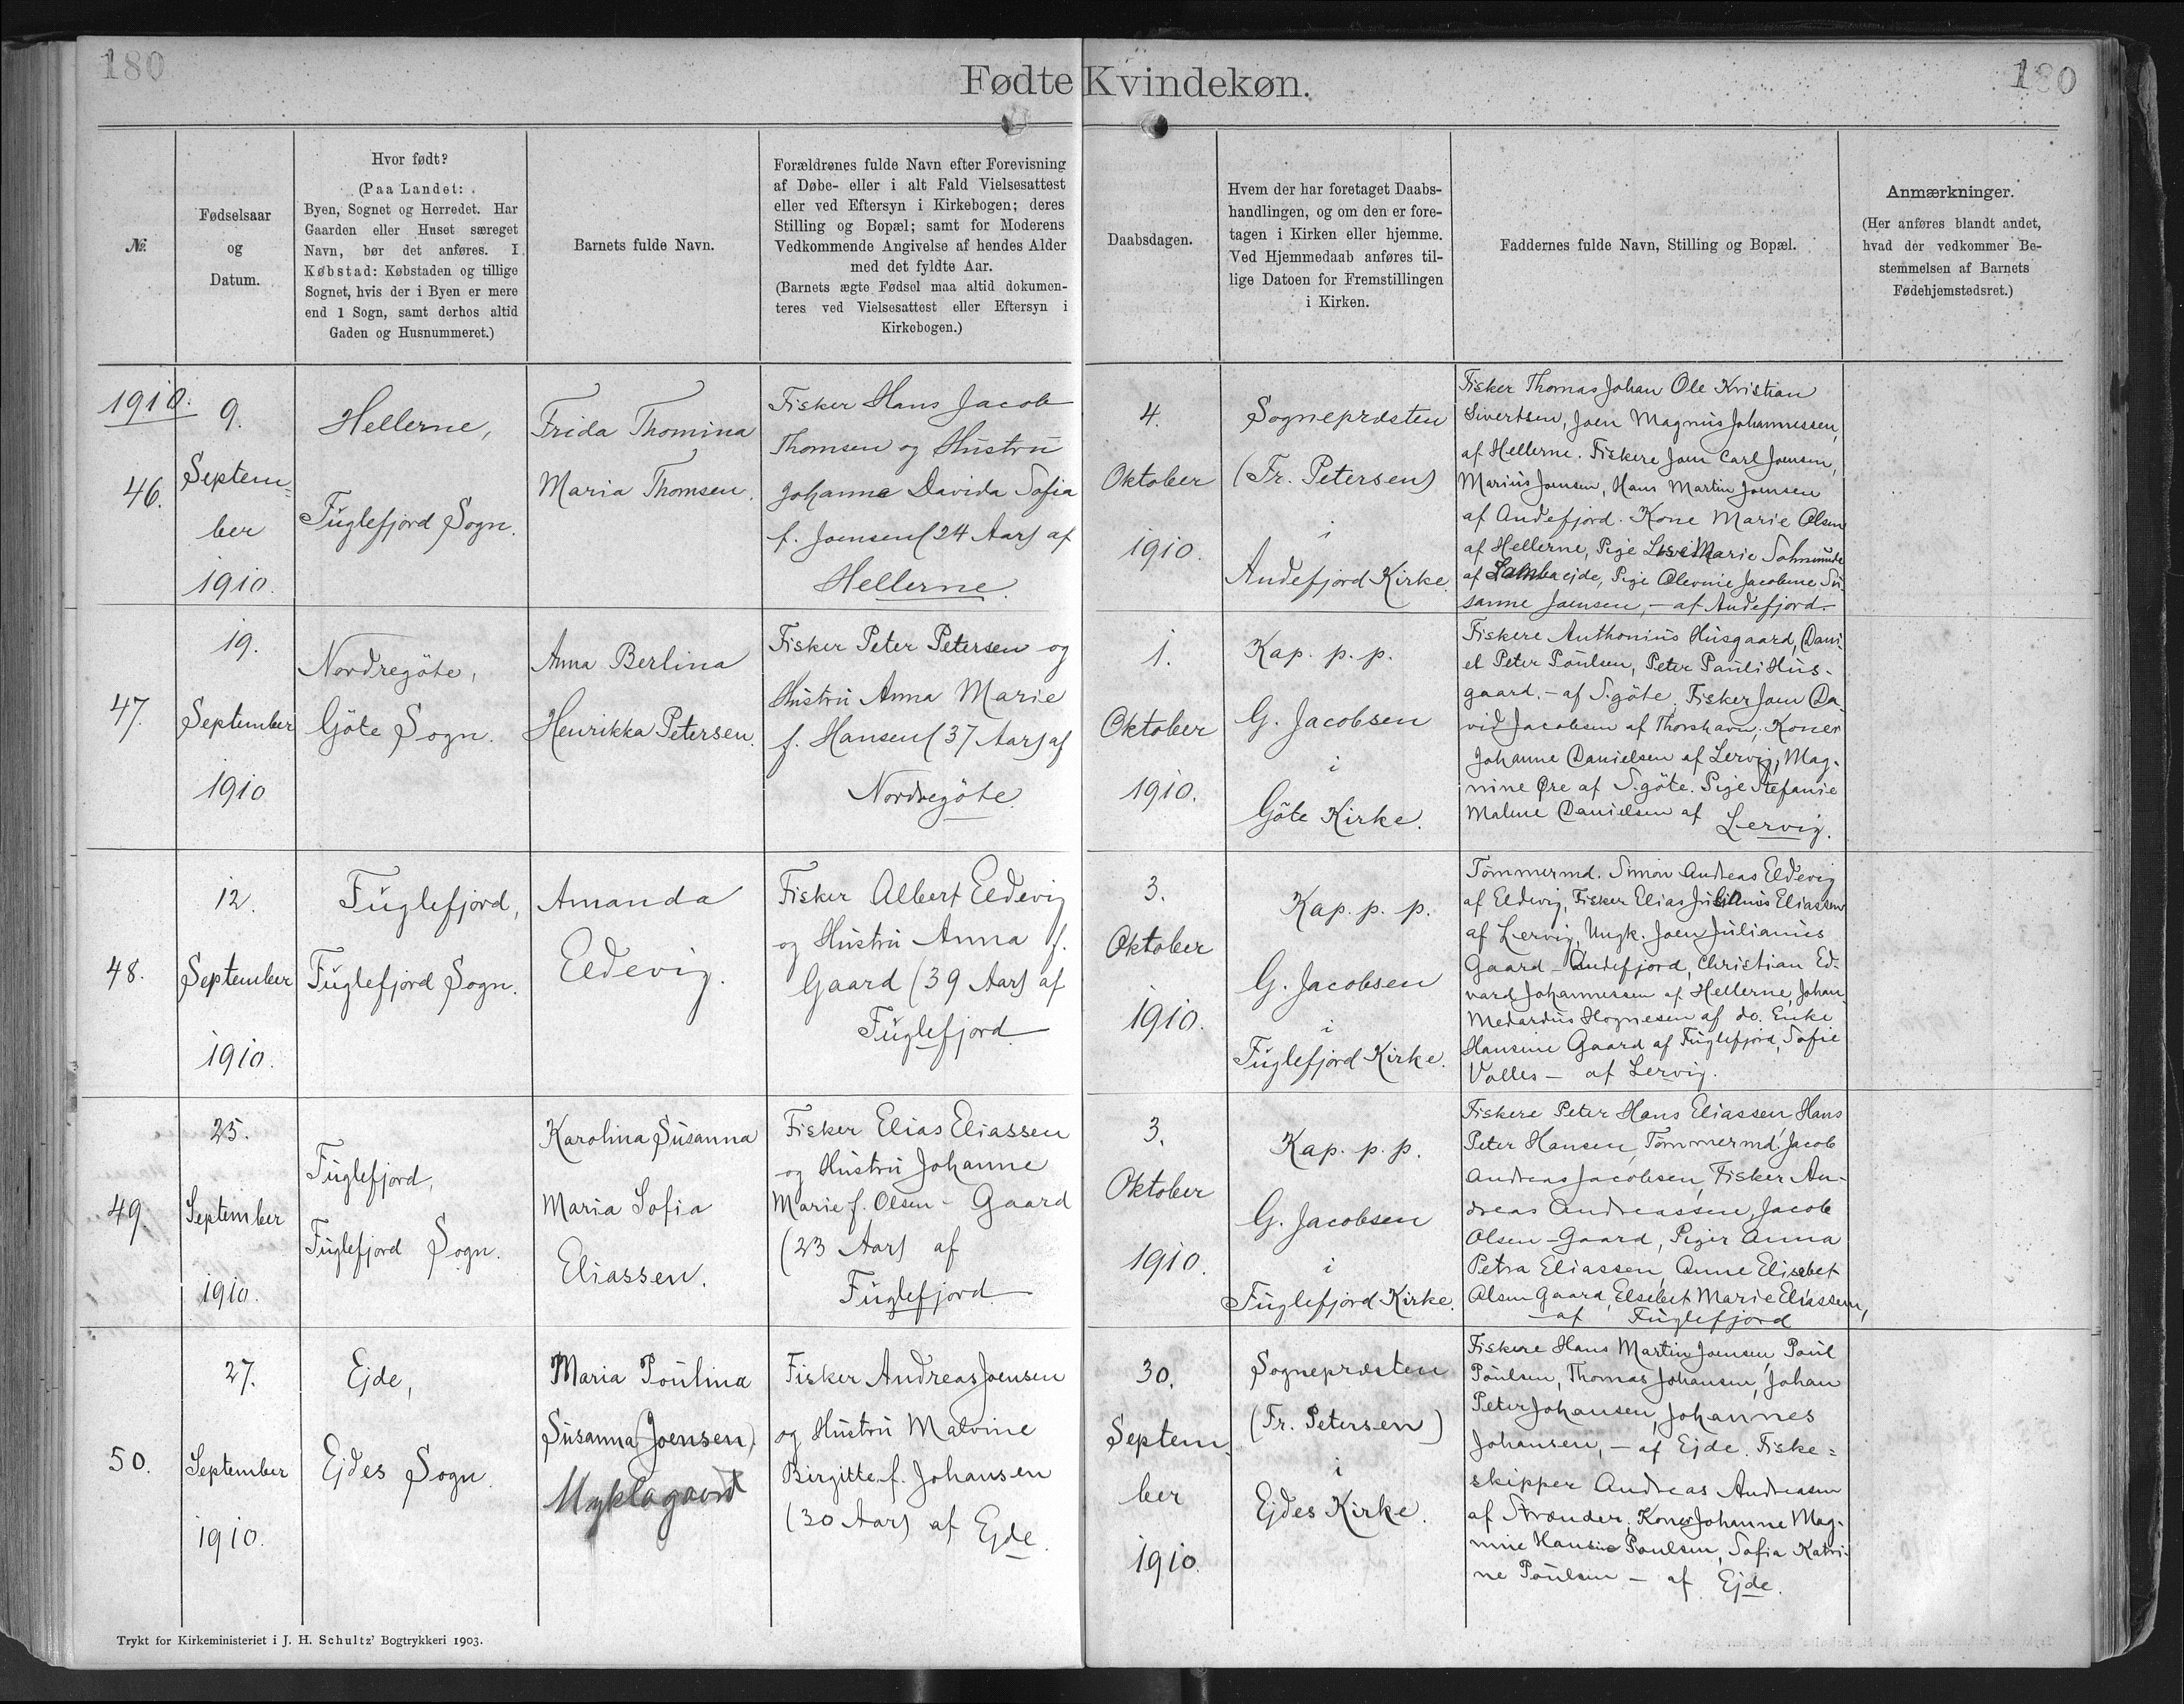 180
Fødte Kvindekøn.
180
№.
Fødselsaar
og
Datum.
Hvor født?
(Paa Landet:
Byen, Sognet og Herredet. Har
Gaarden eller Huset særeget
Navn, bør det anføres. I
Købstad: Købstaden og tillige
Sognet, hvis der i Byen er mere
end 1 Sogn, samt derhos altid
Gaden og Husnummeret.)
Barnets fulde Navn.
Forældrenes fulde Navn efter Forevisning
af Døbe- eller i alt Fald Vielsesattest
eller ved Eftersyn i Kirkebogen; deres
Stilling og Bopæl; samt for Moderens
Vedkommende Angivelse af hendes Alder
med det fyldte Aar.
(Barnets ægte Fødsel maa altid dokumen-
teres ved Vielsesattest eller Eftersyn i
Kirkebogen.)
Daabsdagen.
Hvem der har foretaget Daabs-
handlingen, og om den er fore-
tagen i Kirken eller hjemme.
Ved Hjemmedaab anføres til-
lige Datoen for Fremstillingen
i Kirken.
Faddernes fulde Navn, Stilling og Bopæl.
Anmærkninger.
(Her anføres blandt andet,
hvad der vedkommer Be-
stemmelsen af Barnets
Fødehjemstedsret.)
1910.
46.
9.
Septem-
ber
1910.
Hellerne,
Fuglefjord Sogn.
Frida Thomina
Maria Thomsen.
Fisker Hans Jacob
Thomsen og Hustru
Johanne Davida Sofia
f. Joensen (24 Aar) af
Hellerne.
4.
Oktober
1910.
Sognepræsten
(Fr. Petersen)
i
Andefjord Kirke.
Fisker Thomas Johan Ole Kristian
Sivertsen, Joen Magnus Johannessen,
af Hellerne. Fiskere Joen Carl Joensen,
Marius Joensen, Hans Martin Joensen
af Andefjord. Kone Marie Olsen
af Hellerne, Pige Marie
af Lambaejde, Pige Olevine Jacobine Su-
sanne Joensen, - af Andefjord.
47.
19.
September
1910
Nordregöte,
Göte Sogn.
Anna Berlina
Henrikka Petersen.
Fisker Peter Petersen og
Hustru Anna Marie
f. Hansen (37 Aar) af
Nordregöte.
1.
Oktober
1910.
Kap. p. p.
G. Jacobsen
i
Göte Kirke.
Fiskere Anthonius Husgaard, Dani-
el Peter Poulsen, Peter Pauli Hus-
gaard, - af S.göte. Fisker Joen Da-
vid Jacobsen af Thorshavn; Koner
Johanne Danielsen af Lervig, Mag-
nine Øre af S.göte. Pige Stefanie
Malene Danielsen af Lervig.
48.
12.
September
1910.
Fuglefjord,
Fuglefjord Sogn.
Amanda
Eldevig.
Fisker Albert Eldevig
og Hustru Anna f.
Gaard (39 Aar) af
Fuglefjord
3.
Oktober
1910.
Kap. p. p.
G. Jacobsen
i
Fuglefjord Kirke.
Tömmermd. Simon Andreas Eldevig
af Eldevig, Fisker Elias Eliassen
af Lervig, Ungk. Joen Julianus
Gaard - Andefjord, Christian Ed-
vard Johannessen af Hellerne, Johan
Medardus Hognesen af do. Enke
Hansine Gaard af Fuglefjord, Sofie
Valles - af Lervig.
49.
25.
September
1910.
Fuglefjord,
Fuglefjord Sogn.
Karolina Susanna
Maria Sofia
Eliassen.
Fisker Elias Eliassen
og Hustru Johanne
Marie f. Olsen - Gaard
(23 Aar) af
Fuglefjord
3.
Oktober
1910.
Kap. p. p.
G. Jacobsen
i
Fuglefjord Kirke.
Fiskere Peter Hans Eliassen, Hans
Peter Hansen, Tömmermd. Jacob
Andreas Jacobsen, Fisker An-
dreas Andreassen, Jacob
Olsen - Gaard, Piger Anna
Petra Eliassen, Anne Elisebet
Olsen Gaard, Elsebet Marie Eliassen,
- af Fuglefjord
50.
27.
September
1910.
Ejde,
Ejdes Sogn.
Maria Poulina
Susanna (Joensen)
Myklagaard
Fisker Andreas Joensen
og Hustru Malvine
Birgitte f. Johansen
(30 Aar) af Ejde.
30.
Septem-
ber
1910.
Sognepræsten
(Fr. Petersen)
i
Ejdes Kirke.
Fiskere Hans Martin Joensen, Poul
Poulsen, Thomas Johansen, Johan
Peter Johansen, Johannes
Johansen, - af Ejde. Fiske-
skipper Andreas Andreasen
af Strænder. Koner Johanne Mag-
nine Hansine Poulsen, Sofia Katri-
ne Poulsen - af Ejde.
Trykt for Kirkeministeriet i J. H. Schultz' Bogtrykkeri 1903.